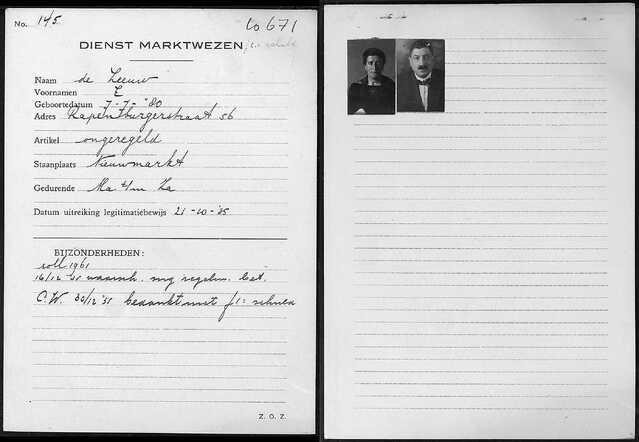 No. 145
Lo 671
DIENST MARKTWEZEN
Naam de Leeuw
Voornamen E
Geboortedatum 7-7-'80
Adres Rapenburgerstraat 56
Artikel ongeregeld
Staanplaats Nieuwmarkt
Gedurende Ma t/m Za
Datum uitreiking legitimatiebewijs 21-10-'35
BIJZONDERHEDEN:
16/12 '35 waarsch.
C.W. 30/12 '35
Z. O. Z.